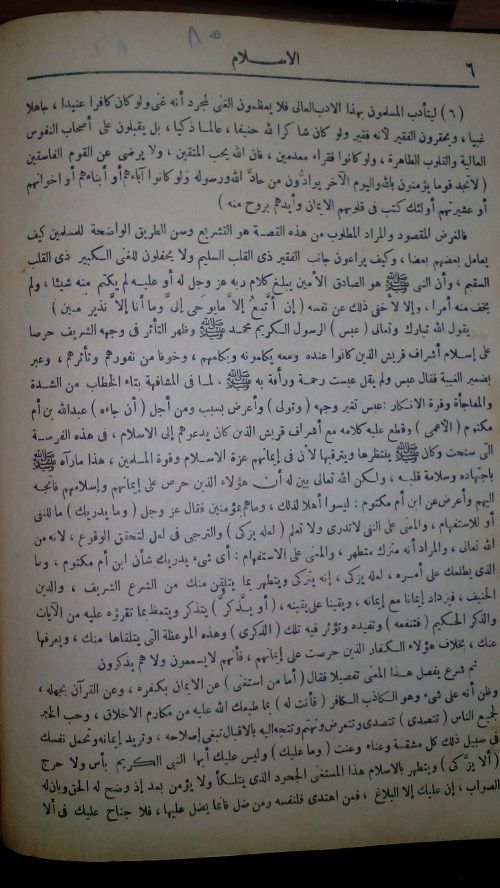 ٨٥
الاسلام
٦
(٦) ليتأدب المسلمون بهذا الادب العالى فلا يعظمون الغنى لمجرد أنه غنى ولو كان كافرا عنيدا ، جاهلا
غبيا ، ويحقرون الفقير لأنه فقير ولو كان شاكرا لله حنيفا ، عالما ذكيا ، بل يقبلون على أصحاب النفوس
العالية والقلوب الطاهرة ، ولو كانوا فقراء معدمين ، فان الله يحب المتقين ، ولا يرضى عن القوم الفاسقين
( لاتجد قوما يؤمنون بالله واليوم الآخر يوادّون من حادّ الله ورسوله ولو كانوا آباءهم أو أبناءهم أو اخوانهم
أو عشيرتهم أولئك كتب فى قلوبهم الايمان وأيدهم بروح منه )
فالغرض المقصود والمراد المطلوب من هذه القصة هو التشريع وسن الطريق الواضحة للمسلمين كيف
يعامل بعضهم بعضا ، وكيف يراعون جانب الفقير ذى القلب السليم ولا يحفلون للغنى الكبير ذى القلب
السقيم ، وأن النبى ﷺ هو الصادق الأمين يبلغ كلام ربه عز وجل له أو عليه لم يكتم منه شيئا ، ولم
يخف منه أمرا ، وإلا لأخفى ذلك عن نفسه ( إن أتّبع إلا مايوحى إلىّ وما أنا إلا نذير مبين )
يقول الله تبارك وتعالى ( عبس ) الرسول الكريم محمد ﷺ وظهر التأثر فى وجهه الشريف حرصا
على إسلام أشراف قريش الذين كانوا عنده ومعه يكلمونه ويكلمهم ، وخوفا من نفورهم وتأثرهم ، وعبر
بضمير الغيبة فقال عبس ولم يقل عبست رحمة ورأفة به ﷺ ، لما فى المشافهة بتاء الخطاب من الشدة
والمفاجأة وقوة الانكار : عبس تغير وجهه ( وتولى ) وأعرض بسبب ومن أجل ( أن جاءه ) عبدالله بن أم
مكتوم ( الأعمى ) وقطع عليه كلامه مع أشراف قريش الذين كان يدعوهم إلى الاسلام ، فى هذه الفرصة
التى سنحت وكان ﷺ ينتظرها ويترقبها لأن فى إيمانهم عزة الاسلام وقوة المسلمين ، هذا مارآه ﷺ
باجتهاده وسلامة قلبه ، ولكن الله تعالى بين له أن هؤلاء الذين حرص على إيمانهم وإسلامهم فاتجه
اليهم وأعرض عن ابن أم مكتوم : ليسوا أهلا لذلك ، وماهم بمؤمنين فقال عز وجل ( وما يدريك ) ما للنفى
أو للاستفهام ، والمعنى على النفى لاتدرى ولا تعلم ( لعله يزكى ) والترجى فى لعل لتحقق الوقوع ، لانه من
الله تعالى ، والمراد أنه متزك متطهر ، والمعنى على الاستفهام : أى شىء يدريك شأن ابن أم مكتوم ، وما
الذى يطلعك على أمره ، لعله يزكى ، إنه يتزكى ويتطهر بما يتلقن منك من الشرع الشريف ، والدين
الحنيف ، فيزداد إيمانا مع إيمانه ، ويقينا على يقينه ، ( أو يذّكر ) يتذكر ويتعظ بما تقرؤه عليه من الآيات
والذكر الحكيم ( فتنفعه ) وتفيده وتؤثر فيه تلك ( الذكرى ) وهذه الموعظة التى يتلقاها منك ، ويعرفها
عنك ، بخلاف هؤلاء الكفار الذين حرصت على إيمانهم ، فأنهم لايسمعون ولا هم يذكرون
ثم شرع يفصل هذا المعنى تفصيلا فقال ( أما من استغنى ) عن الايمان بكفره ، وعن القرآن بجهله ،
وظن أنه على شىء وهو الكاذب الكافر ( فأنت له ) بما طبعك الله عليه من مكارم الاخلاق ، وحب الخير
لجميع الناس ( تصدى ) تتصدى وتتعرض وتهتم وتتجه اليه بالاقبال تبغى إصلاحه ، وتريد إيمانه وتحمل نفسك
فى سبيل ذلك كل مشقة وعناء وعنت ( وما عليك ) وليس عليك أيها النبى الكريم بأس ولا حرج
( ألا يزّكى ) ويتطهر بالاسلام هذا المستغنى الجحود الذى يتلكأ ولا يؤمن بعد إذ وضح له الحق وبان له
الصواب ، إن عليك إلا البلاغ ، فمن اهتدى فلنفسه ومن ضل فانما يضل عليها ، فلا جناح عليك فى ألا